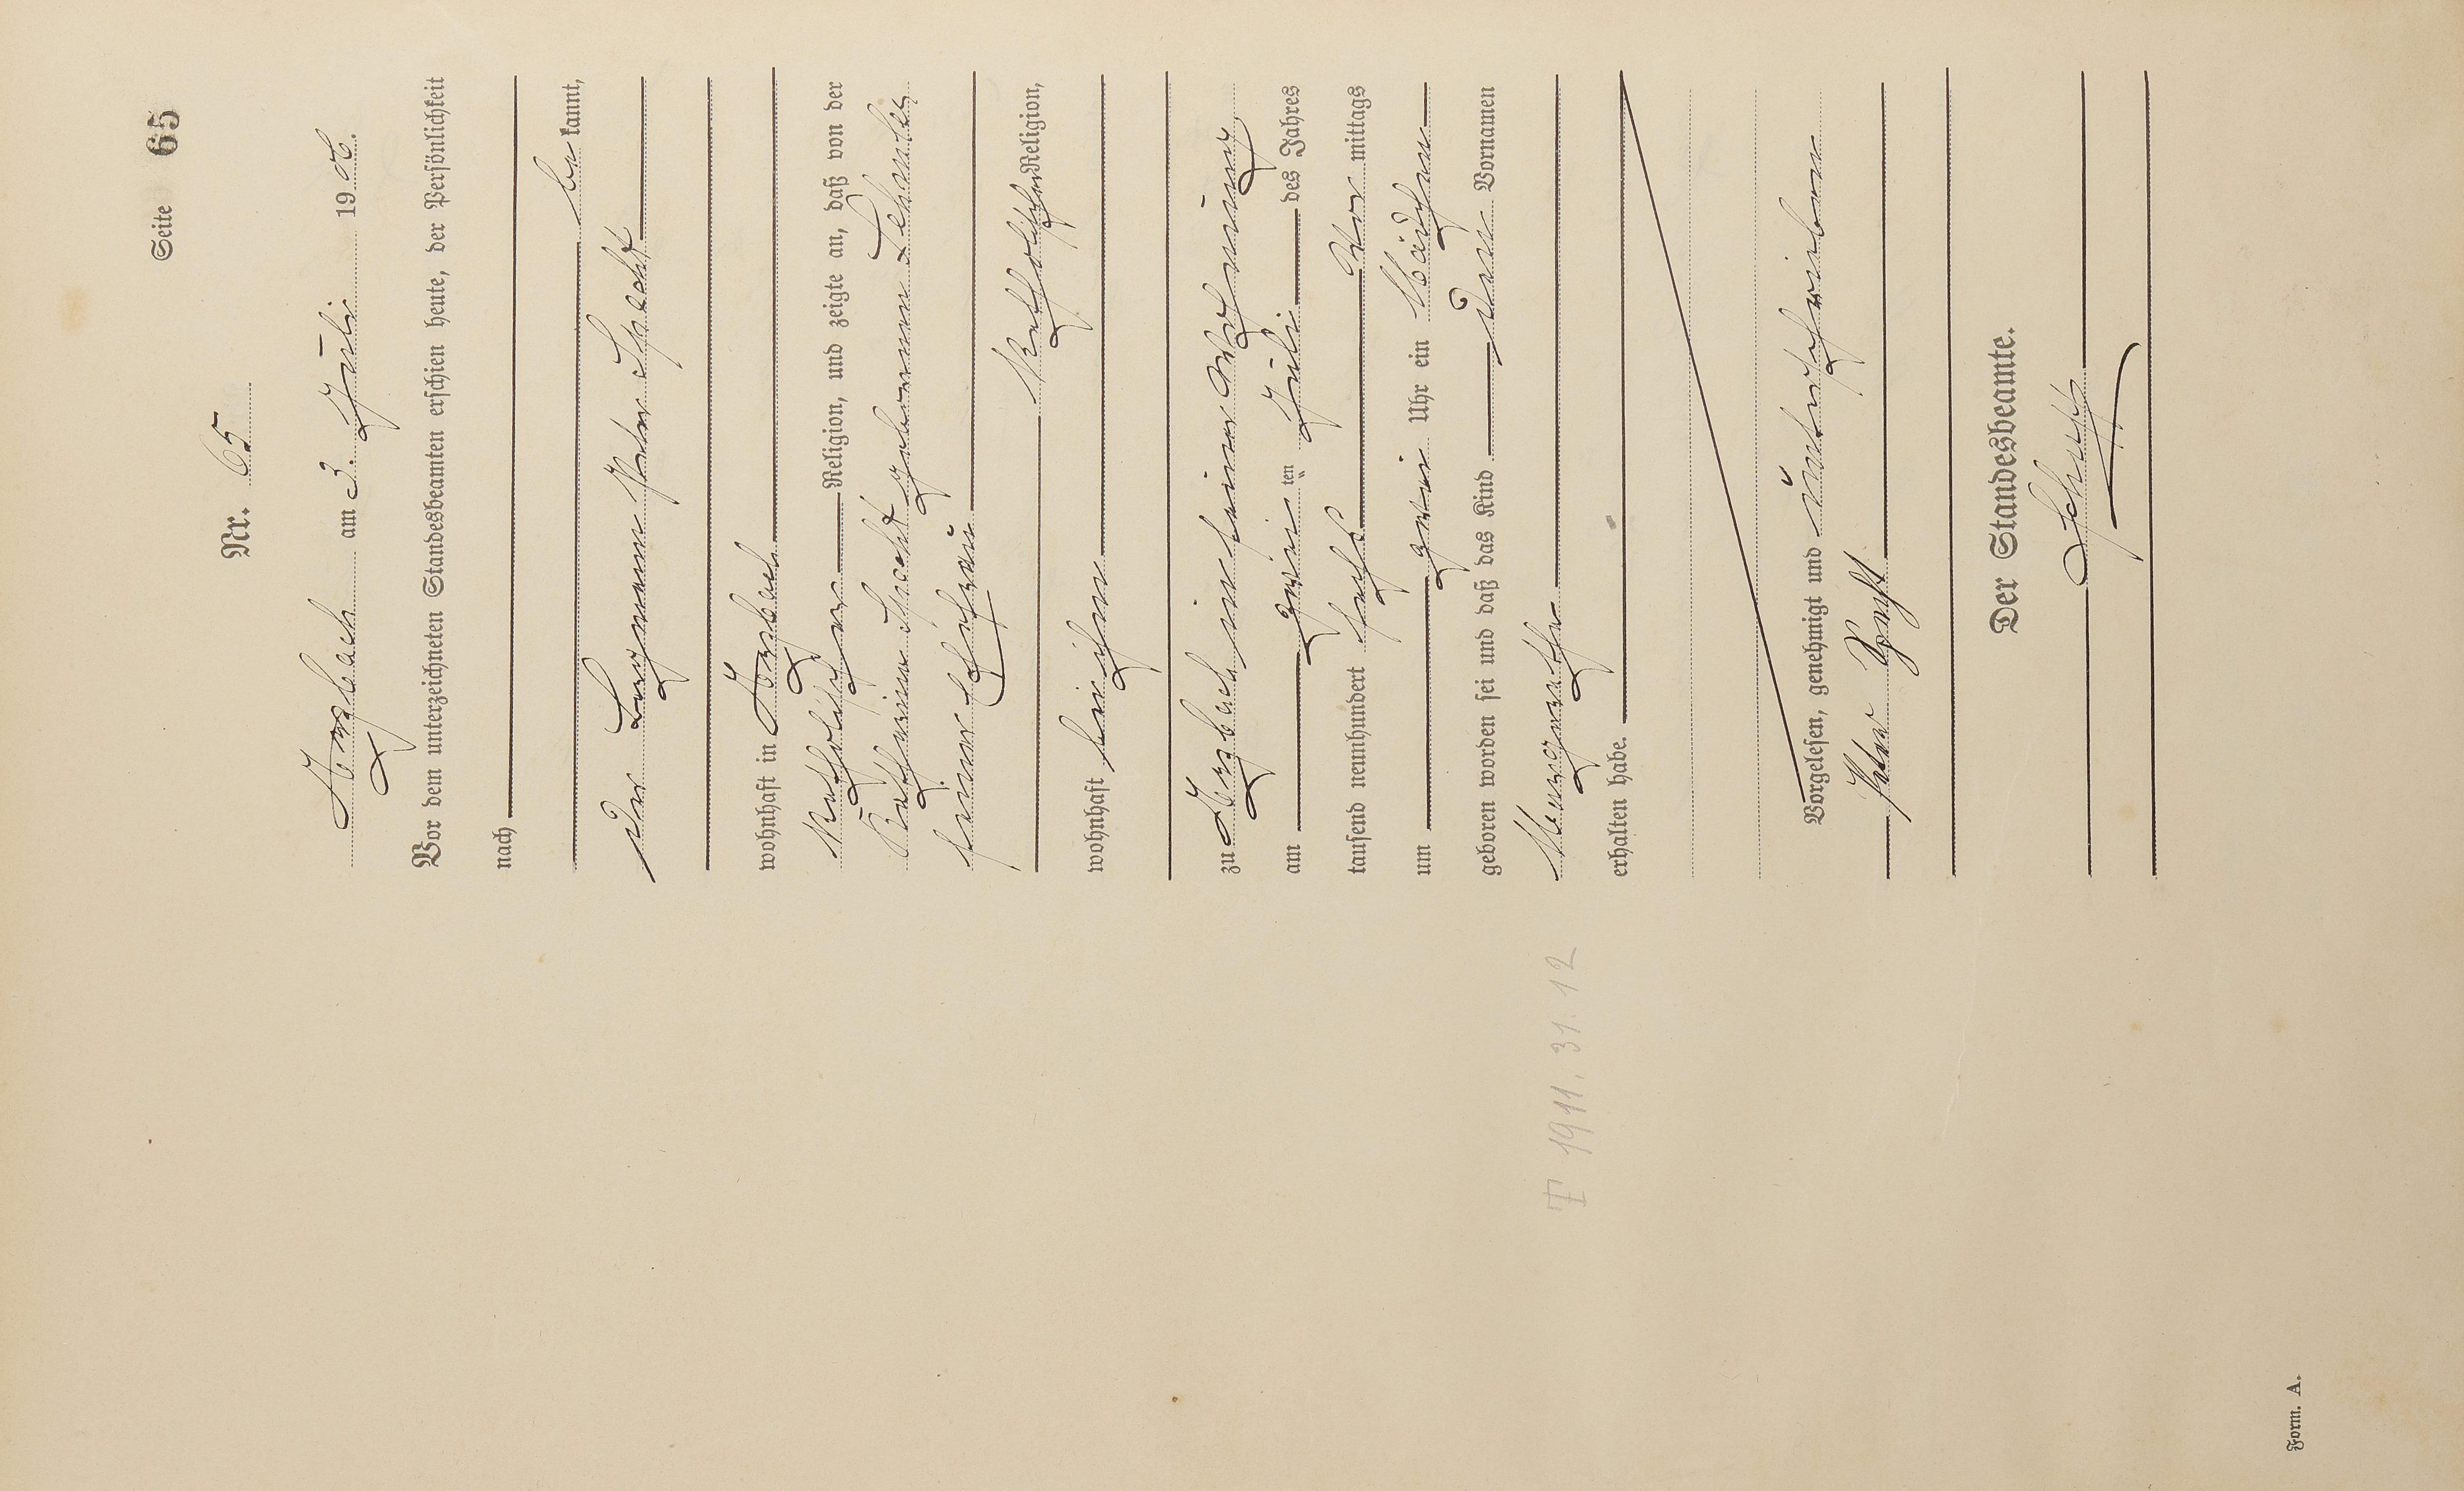 Seite 65
Nr. 65
Arzbach am 3. Juli 1906.
Vor dem unterzeichneten Standesbeamten erschien heute, der Persönlichkeit
nach
be kannt,
der Bergmann Peter Specht
wohnhaft in Arzbach
katholischer Religion, und zeigte an, daß von der
Katharina Specht geborenen
seiner Ehefrau
katholischer Religion,
wohnhaft bei ihm
zu Arzbach in seiner Wohnung
am zwei ten Juli des Jahres
tausend neunhundert sechs Vor mittags
um zwei Uhr ein Mädchen
geboren worden sei und daß das Kind den Vornamen
Margaretha
erhalten habe.
Vorgelesen, genehmigt und unterschrieben
Peter Specht
Der Standesbeamte.
Schupp
T 1911. 31. 12
Form. A.